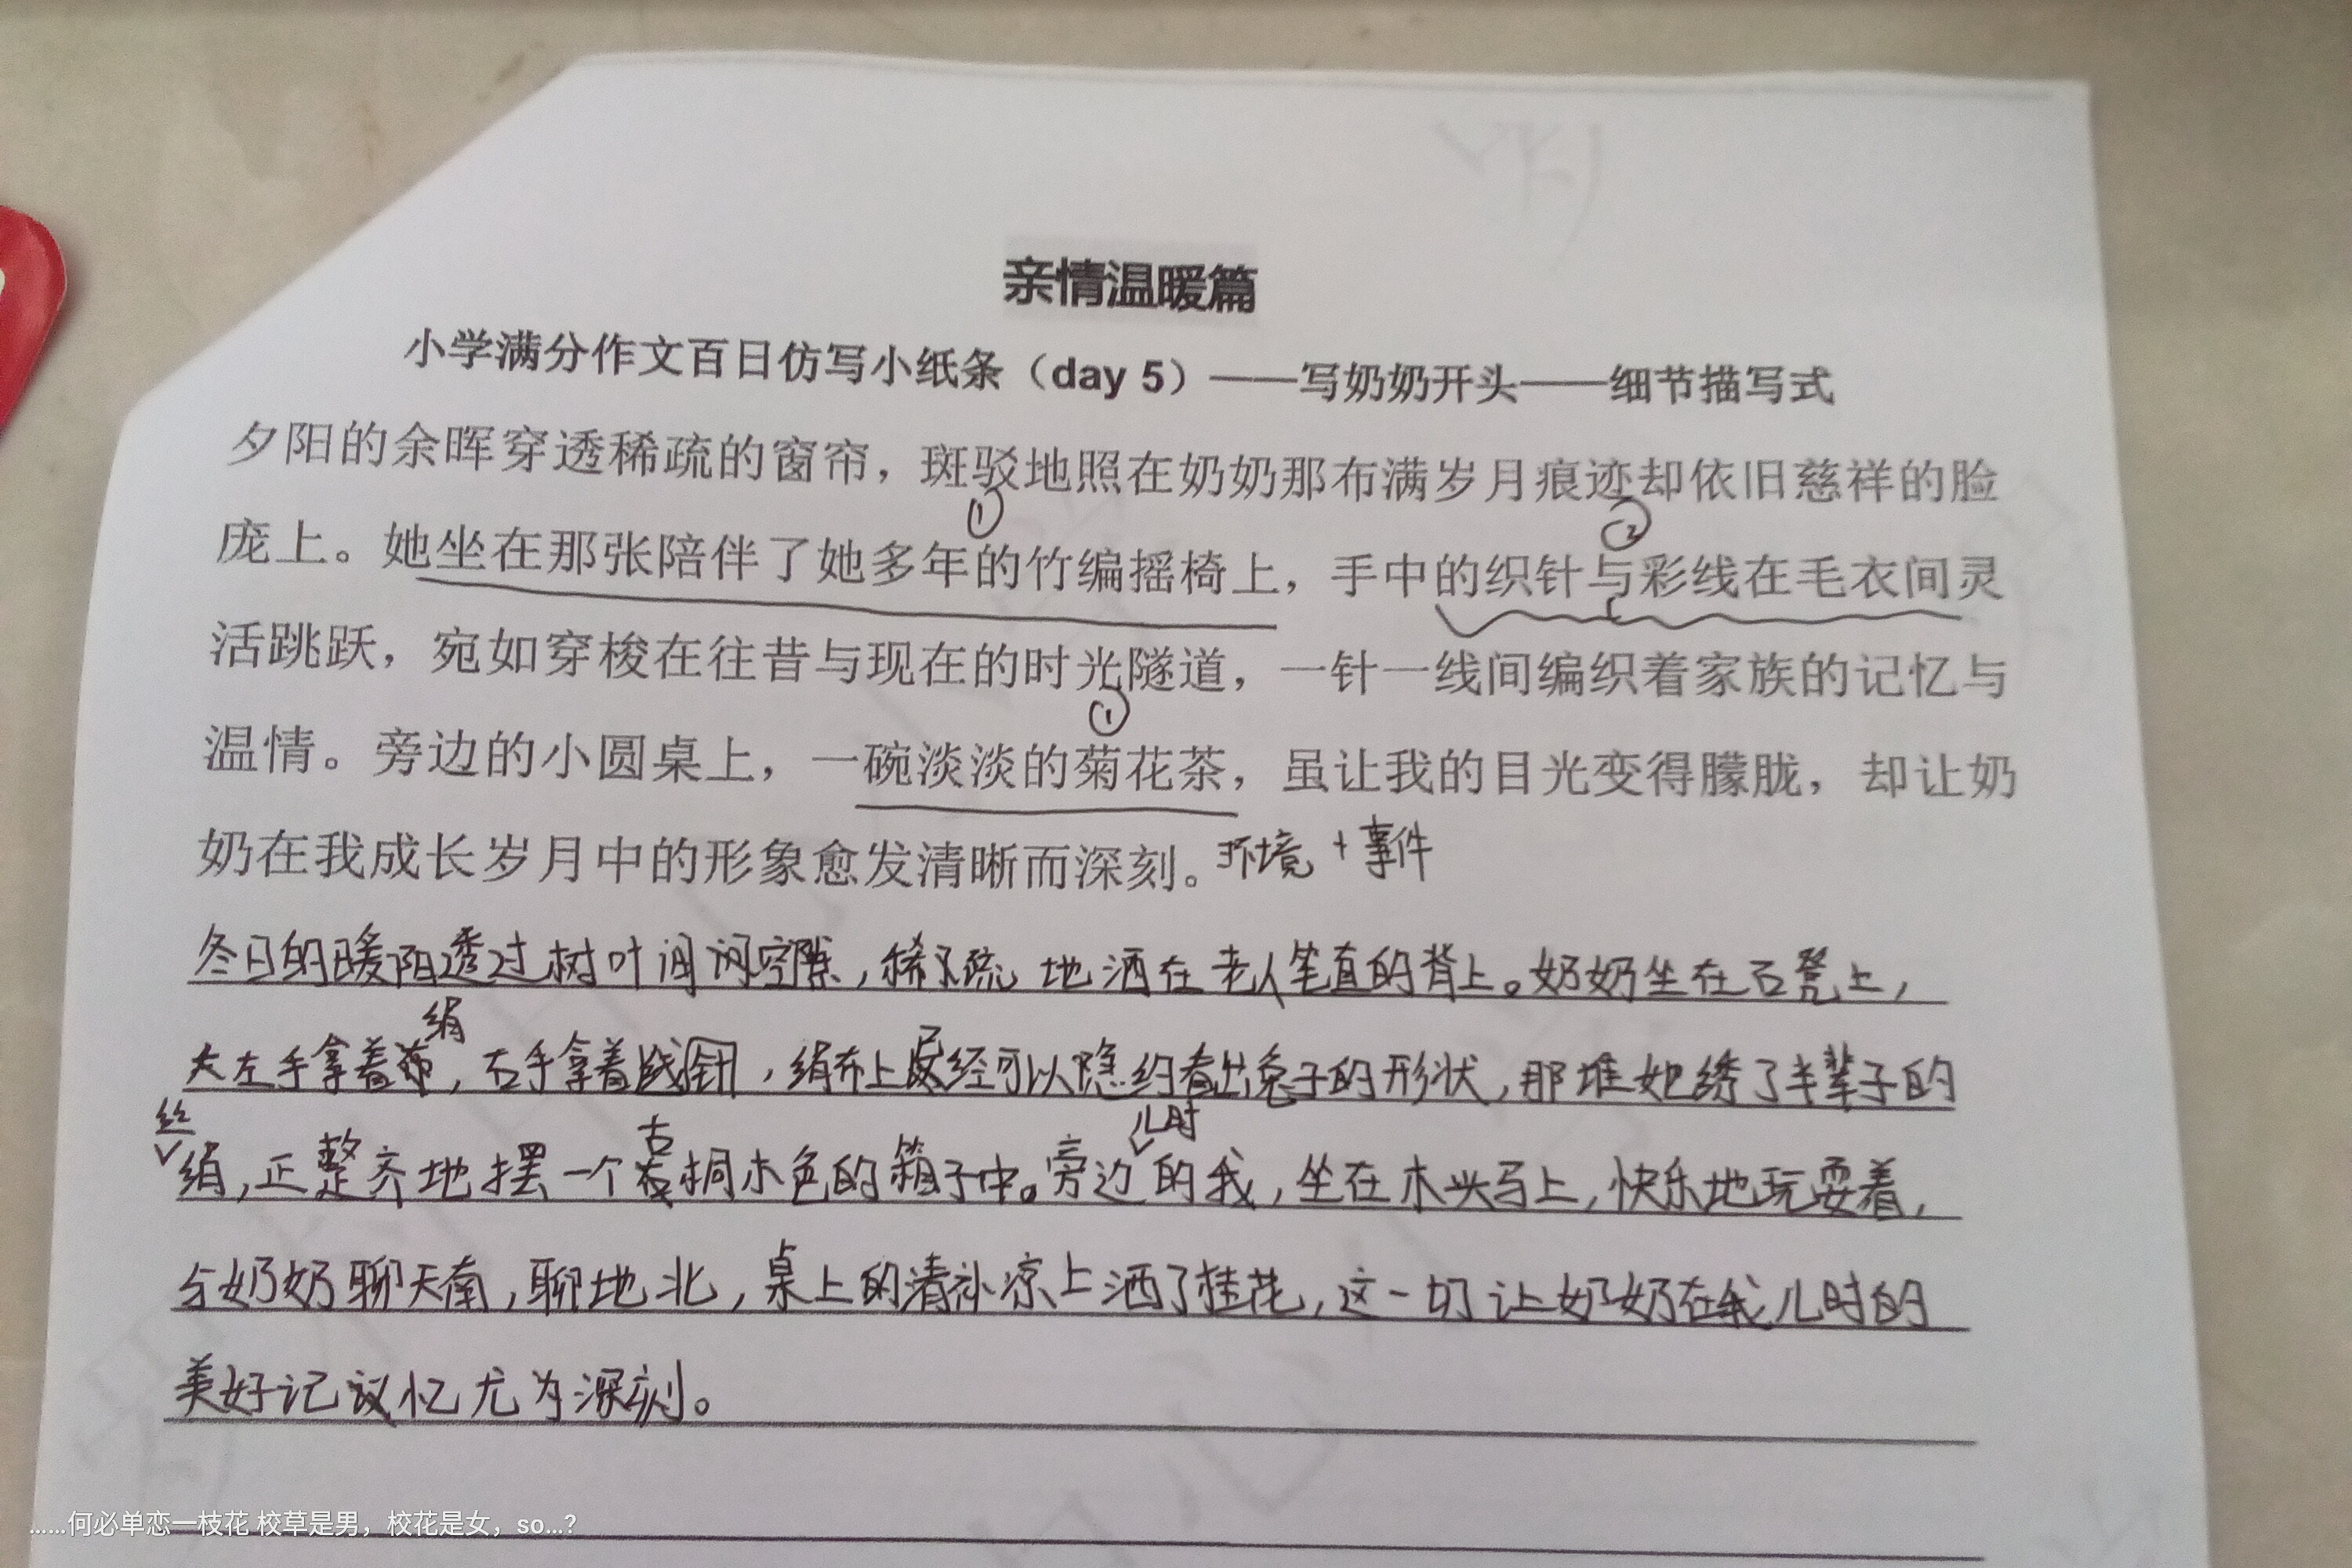 亲情温暖篇
小学满分作文百日仿写小纸条（day 5）——写奶奶开头——细节描写式
夕阳的余晖穿透稀疏的窗帘，斑驳地照在奶奶那布满岁月痕迹却依旧慈祥的脸
① ②
庞上。她坐在那张陪伴了她多年的竹编摇椅上，手中的织针与彩线在毛衣间灵
活跳跃，宛如穿梭在往昔与现在的时光隧道，一针一线间编织着家族的记忆与
①
温情。旁边的小圆桌上，一碗淡淡的菊花茶，虽让我的目光变得朦胧，却让奶
奶在我成长岁月中的形象愈发清晰而深刻。环境+事件
冬日的暖阳透过树叶间空隙，稀疏地洒在老人笔直的背上。奶奶坐在石凳上，
绢
左手拿着布，右手拿着线针，绢布上已经可以隐约看出兔子的形状，那堆她绣了半辈子的
丝 古 儿时
绢，正整齐地摆一个桐木色的箱子中。旁边的我，坐在木头马上，快乐地玩耍着，
与奶奶聊天南，聊地北，桌上的清补凉上洒了桂花，这一切让奶奶在我儿时的
美好记忆尤为深刻。
……何必单恋一枝花 校草是男，校花是女，so...?